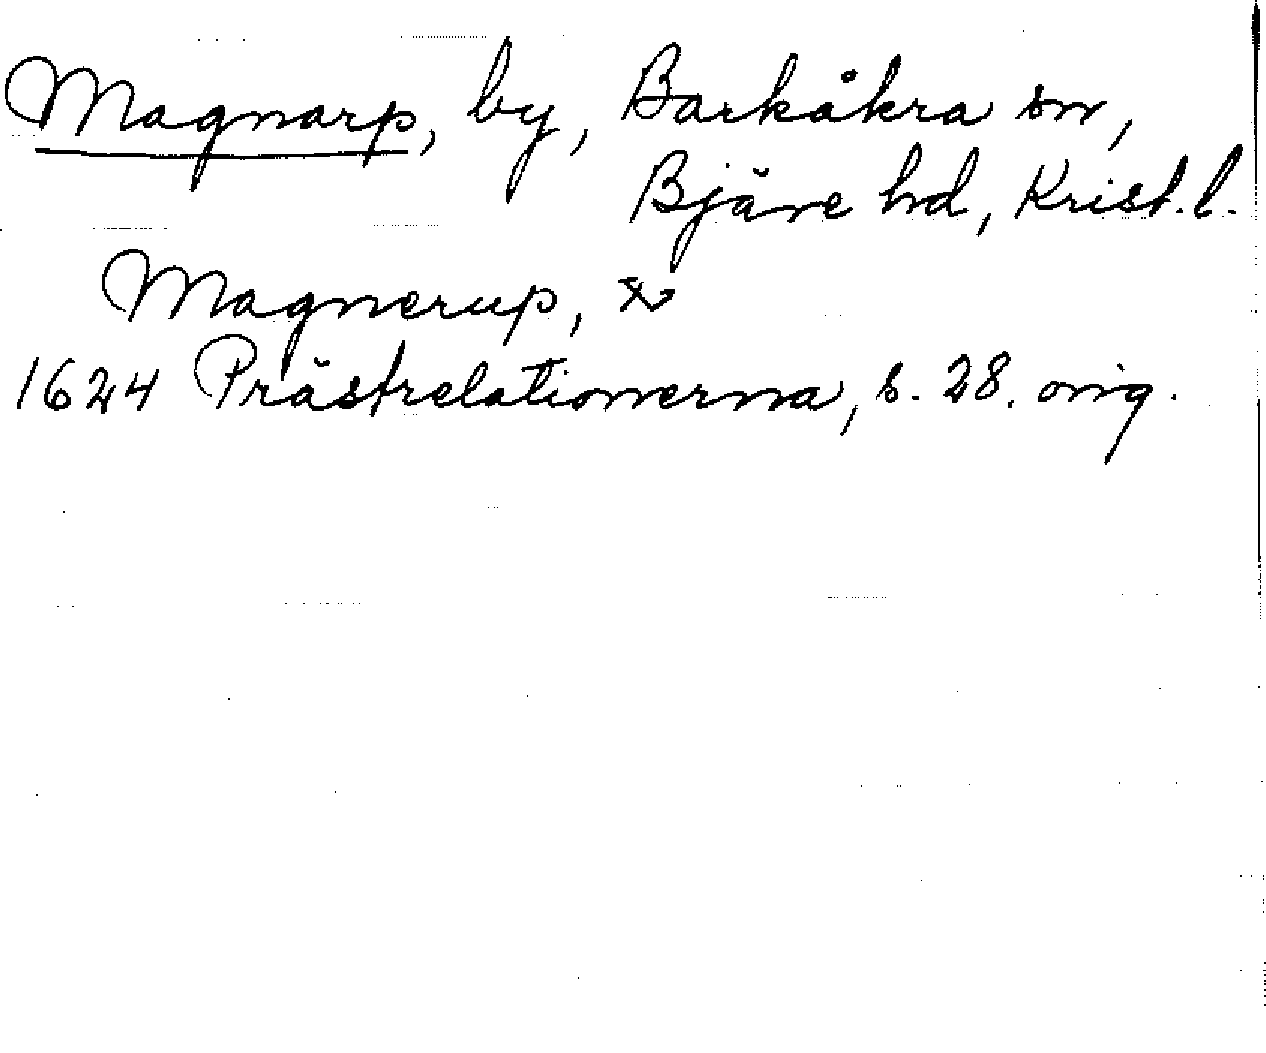 Magnarp, by, Barkåkra sn,
Bjäre hd, Krist. l.
Magnerup,
1624 Prästrelationerna, s. 28. orig.